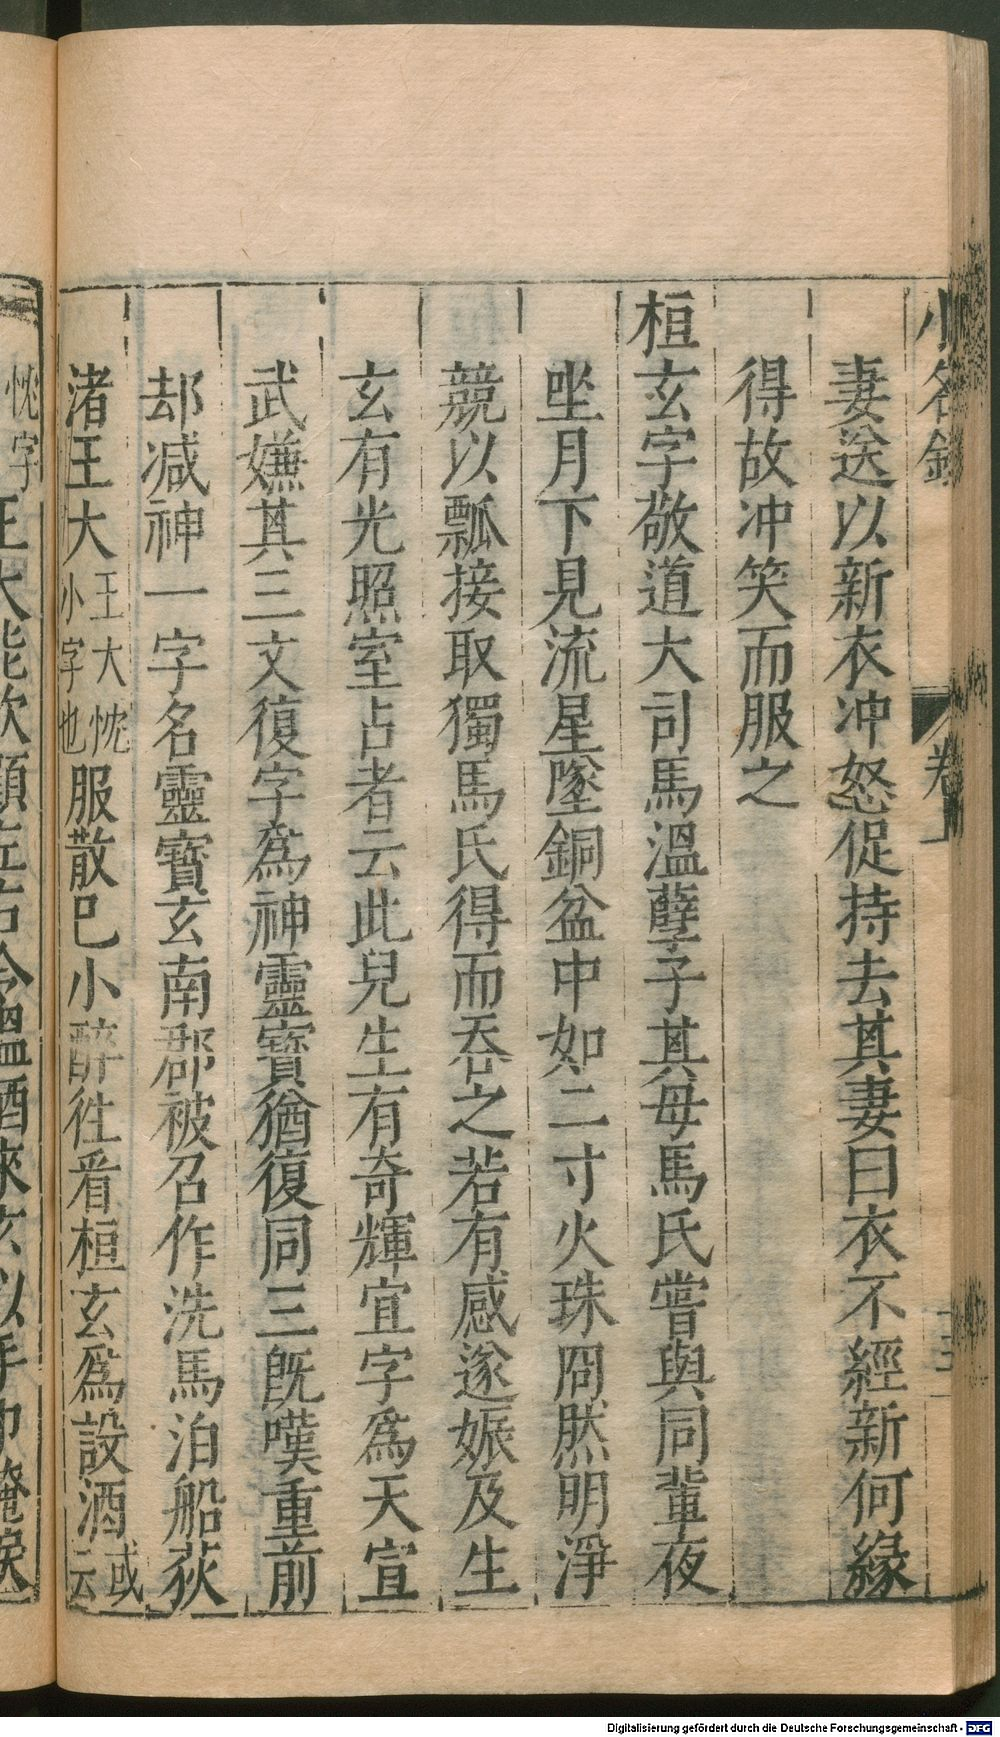 小名錄 卷上
妻送以新衣冲怒促持去其妻曰衣不經新何緣
得故冲笑而服之
桓玄字敬道大司馬溫孽子其母馬氏嘗與同輩夜
坐月下見流星墜銅盆中如二寸火珠冏然明淨
競以瓢接取獨馬氏得而吞之若有感遂娠及生
玄有光照室占者云此兒生有奇輝宜字為天宣
武嫌其三文復字為神靈寶猶復同三旣嘆重前
却减神一字名靈寶玄南郡被召作洗馬泊船荻
渚王大王大忱小字也服散已小醉徃看桓玄為設酒或云
忱字王大能飲頻左右令溫酒來玄以手巾掩淚
Digitalisierung gefördert durch die Deutsche Forschungsgemeinschaft - DFG